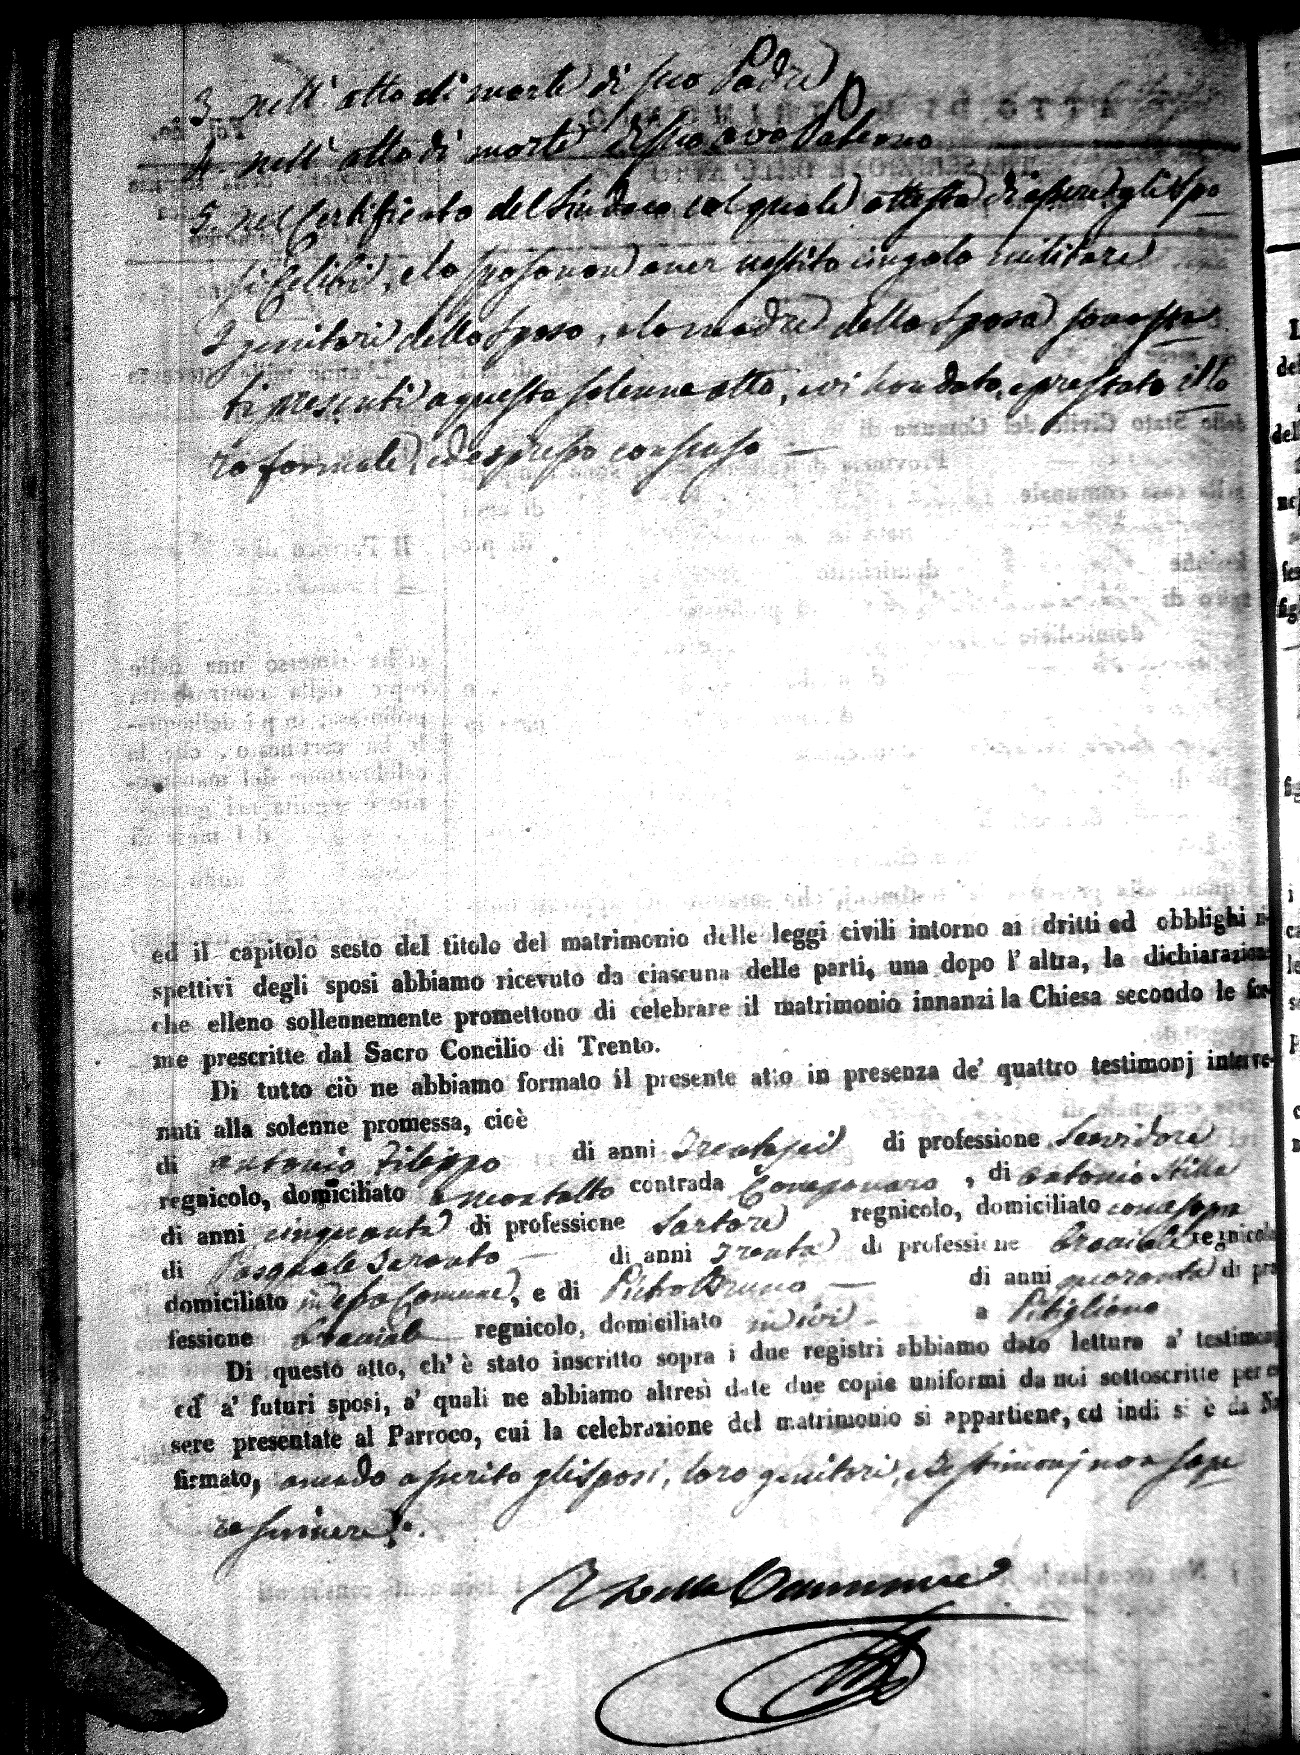 3. nell' atto di morte di suo Padre
4. nell' atto di morte di suo avo Paterno
5. nel Certificato del Sindaco col quale attesta di essere gli spo
si celibi, e lo sposo non aver vestito cingolo militare
I genitori dello sposo, e la madre della sposa sono sta
ti presenti a questo solenne atto, cui han dato, e prestato il lo
ro formale, ed espresso consenso —
ed il capitolo sesto del titolo del matrimonio delle leggi civili intorno ai dritti ed obblighi ri-
spettivi degli sposi abbiamo ricevuto da ciascuna delle parti, una dopo l' altra, la dichiarazione
che elleno sollennemente promettono di celebrare il matrimonio innanzi la Chiesa secondo le for-
me prescritte dal Sacro Concilio di Trento.
Di tutto ciò ne abbiamo formato il presente atto in presenza de' quattro testimonj interve-
nuti alla solenne promessa, cioè
di Antonio Filippo di anni Trentasei di professione Servidore
regnicolo, domiciliato a Montalto contrada , di Antonio Stilla
di anni cinquanta di professione Sartore regnicolo, domiciliato come sopra
di Pasquale — di anni Trenta di professione Bracciale regnicolo
domiciliato in esso Comune, e di Pietro Bruno — di anni quaranta di pro
fessione Bracciale regnicolo, domiciliato in ivi a
Di questo atto, ch' è stato inscritto sopra i due registri abbiamo dato lettura a' testimonj
ed a' futuri sposi, a' quali ne abbiamo altresì date due copie uniformi da noi sottoscritte per es
sere presentate al Parroco, cui la celebrazione del matrimonio si appartiene, ed indi si è da Noi
firmato, avendo asserito gli sposi, loro genitori, e testimonj non sape
re scrivere.